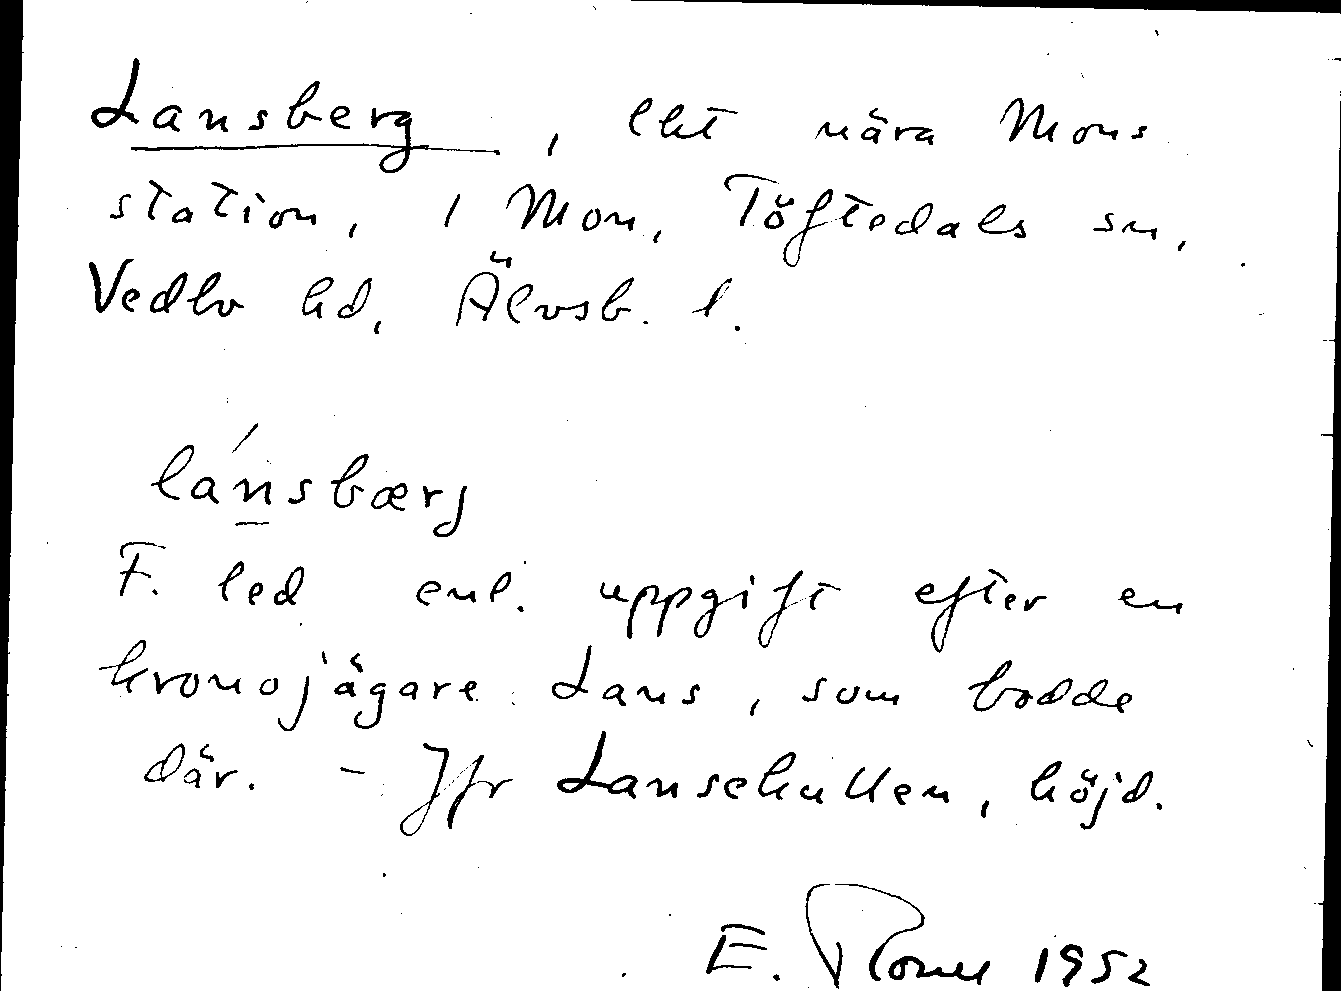 Lansberg, lht nära Mons
station, 1 Mon, Töftedals sn,
Vedbo hd, Älvsb. l.
lánsbærj
F. led enl. uppgift efter en
kronojägare Lans, som bodde
där. - Jfr Lansekullen, höjd.
E. 1952